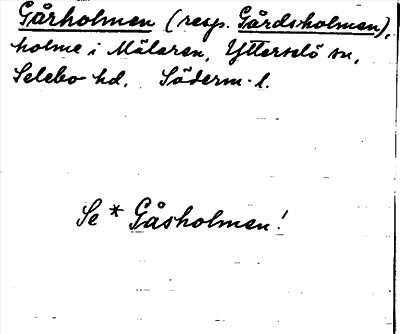 Gårholmen (resp. Gårdsholmen),
holme i Mälaren, Ytterselö sn,
Selebo hd. Söderm. l.
Se * Gåsholmen!